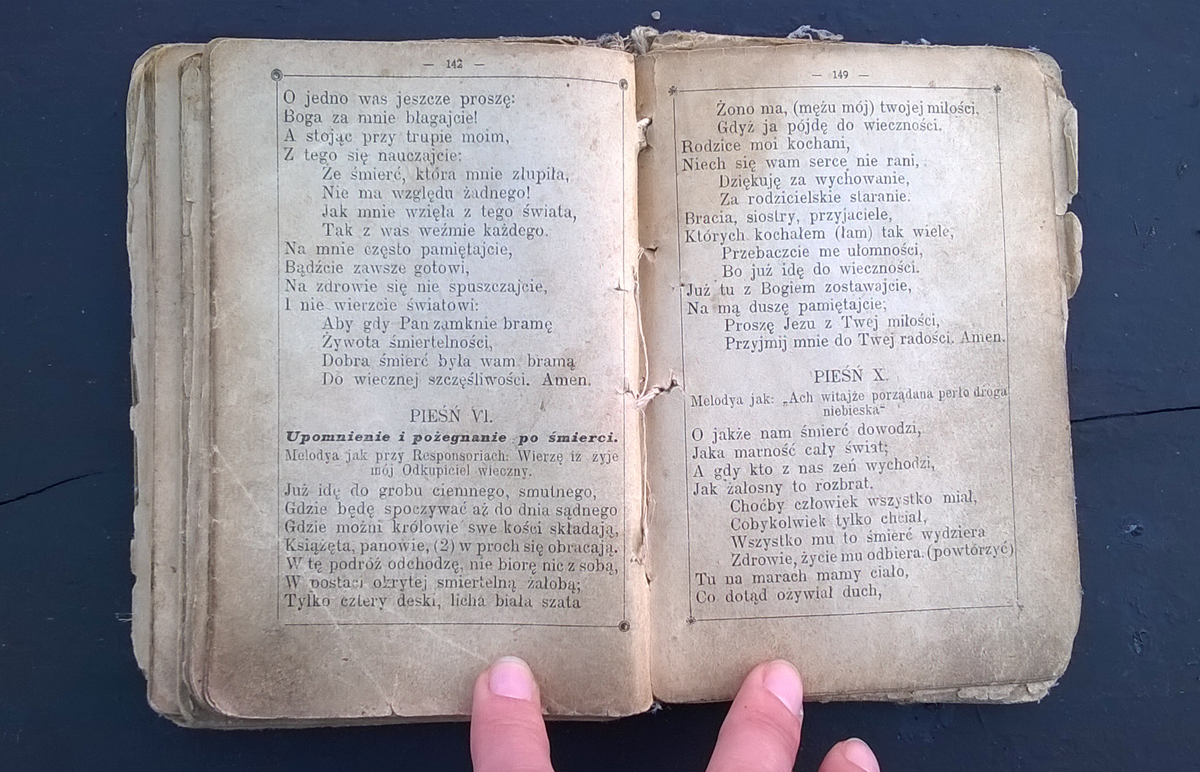 — 142 —
O jedno was jeszcze proszę:
Boga za mnie błagajcie!
A stojąc przy trupie moim,
Z tego się nauczajcie:
Że śmierć, która mnie złupiła,
Nie ma względu żadnego!
Jak mnie wzięła z tego świata,
Tak z was weźmie każdego.
Na mnie często pamiętajcie,
Bądźcie zawsze gotowi,
Na zdrowie się nie spuszczajcie,
I nie wierzcie światowi:
Aby gdy Pan zamknie bramę
Żywota śmiertelności,
Dobra śmierć była wam bramą
Do wiecznej szczęśliwości. Amen.
PIEŚŃ VI.
Upomnienie i pożegnanie po śmierci.
Melodya jak przy Responsoriach: Wierzę iż żyje
mój Odkupiciel wieczny.
Już idę do grobu ciemnego, smutnego,
Gdzie będę spoczywać aż do dnia sądnego
Gdzie możni królowie swe kości składają,
Książęta, panowie, (2) w proch się obracają.
W tę podróż odchodzę, nie biorę nic z sobą,
W postaci okrytej śmiertelną żałobą;
Tylko cztery deski, licha biała szata
— 149 —
Żono ma, (mężu mój) twojej miłości.
Gdyż ja pójdę do wieczności.
Rodzice moi kochani,
Niech się wam serce nie rani,
Dziękuję za wychowanie,
Za rodzicielskie staranie.
Bracia, siostry, przyjaciele,
Których kochałem (łam) tak wiele,
Przebaczcie me ułomności,
Bo już idę do wieczności.
Już tu z Bogiem zostawajcie,
Na mą duszę pamiętajcie;
Proszę Jezu z Twej miłości,
Przyjmij mnie do Twej radości. Amen.
PIEŚŃ X.
Melodya jak: „Ach witajże porządana perło droga
niebieska"
O jakże nam śmierć dowodzi,
Jaka marność cały świat;
A gdy kto z nas zeń wychodzi,
Jak żałosny to rozbrat.
Choćby człowiek wszystko miał,
Cobykolwiek tylko chciał,
Wszystko mu to śmierć wydziera
Zdrowie, życie mu odbiera. (powtórzyć)
Tu na marach mamy ciało,
Co dotąd ożywiał duch,